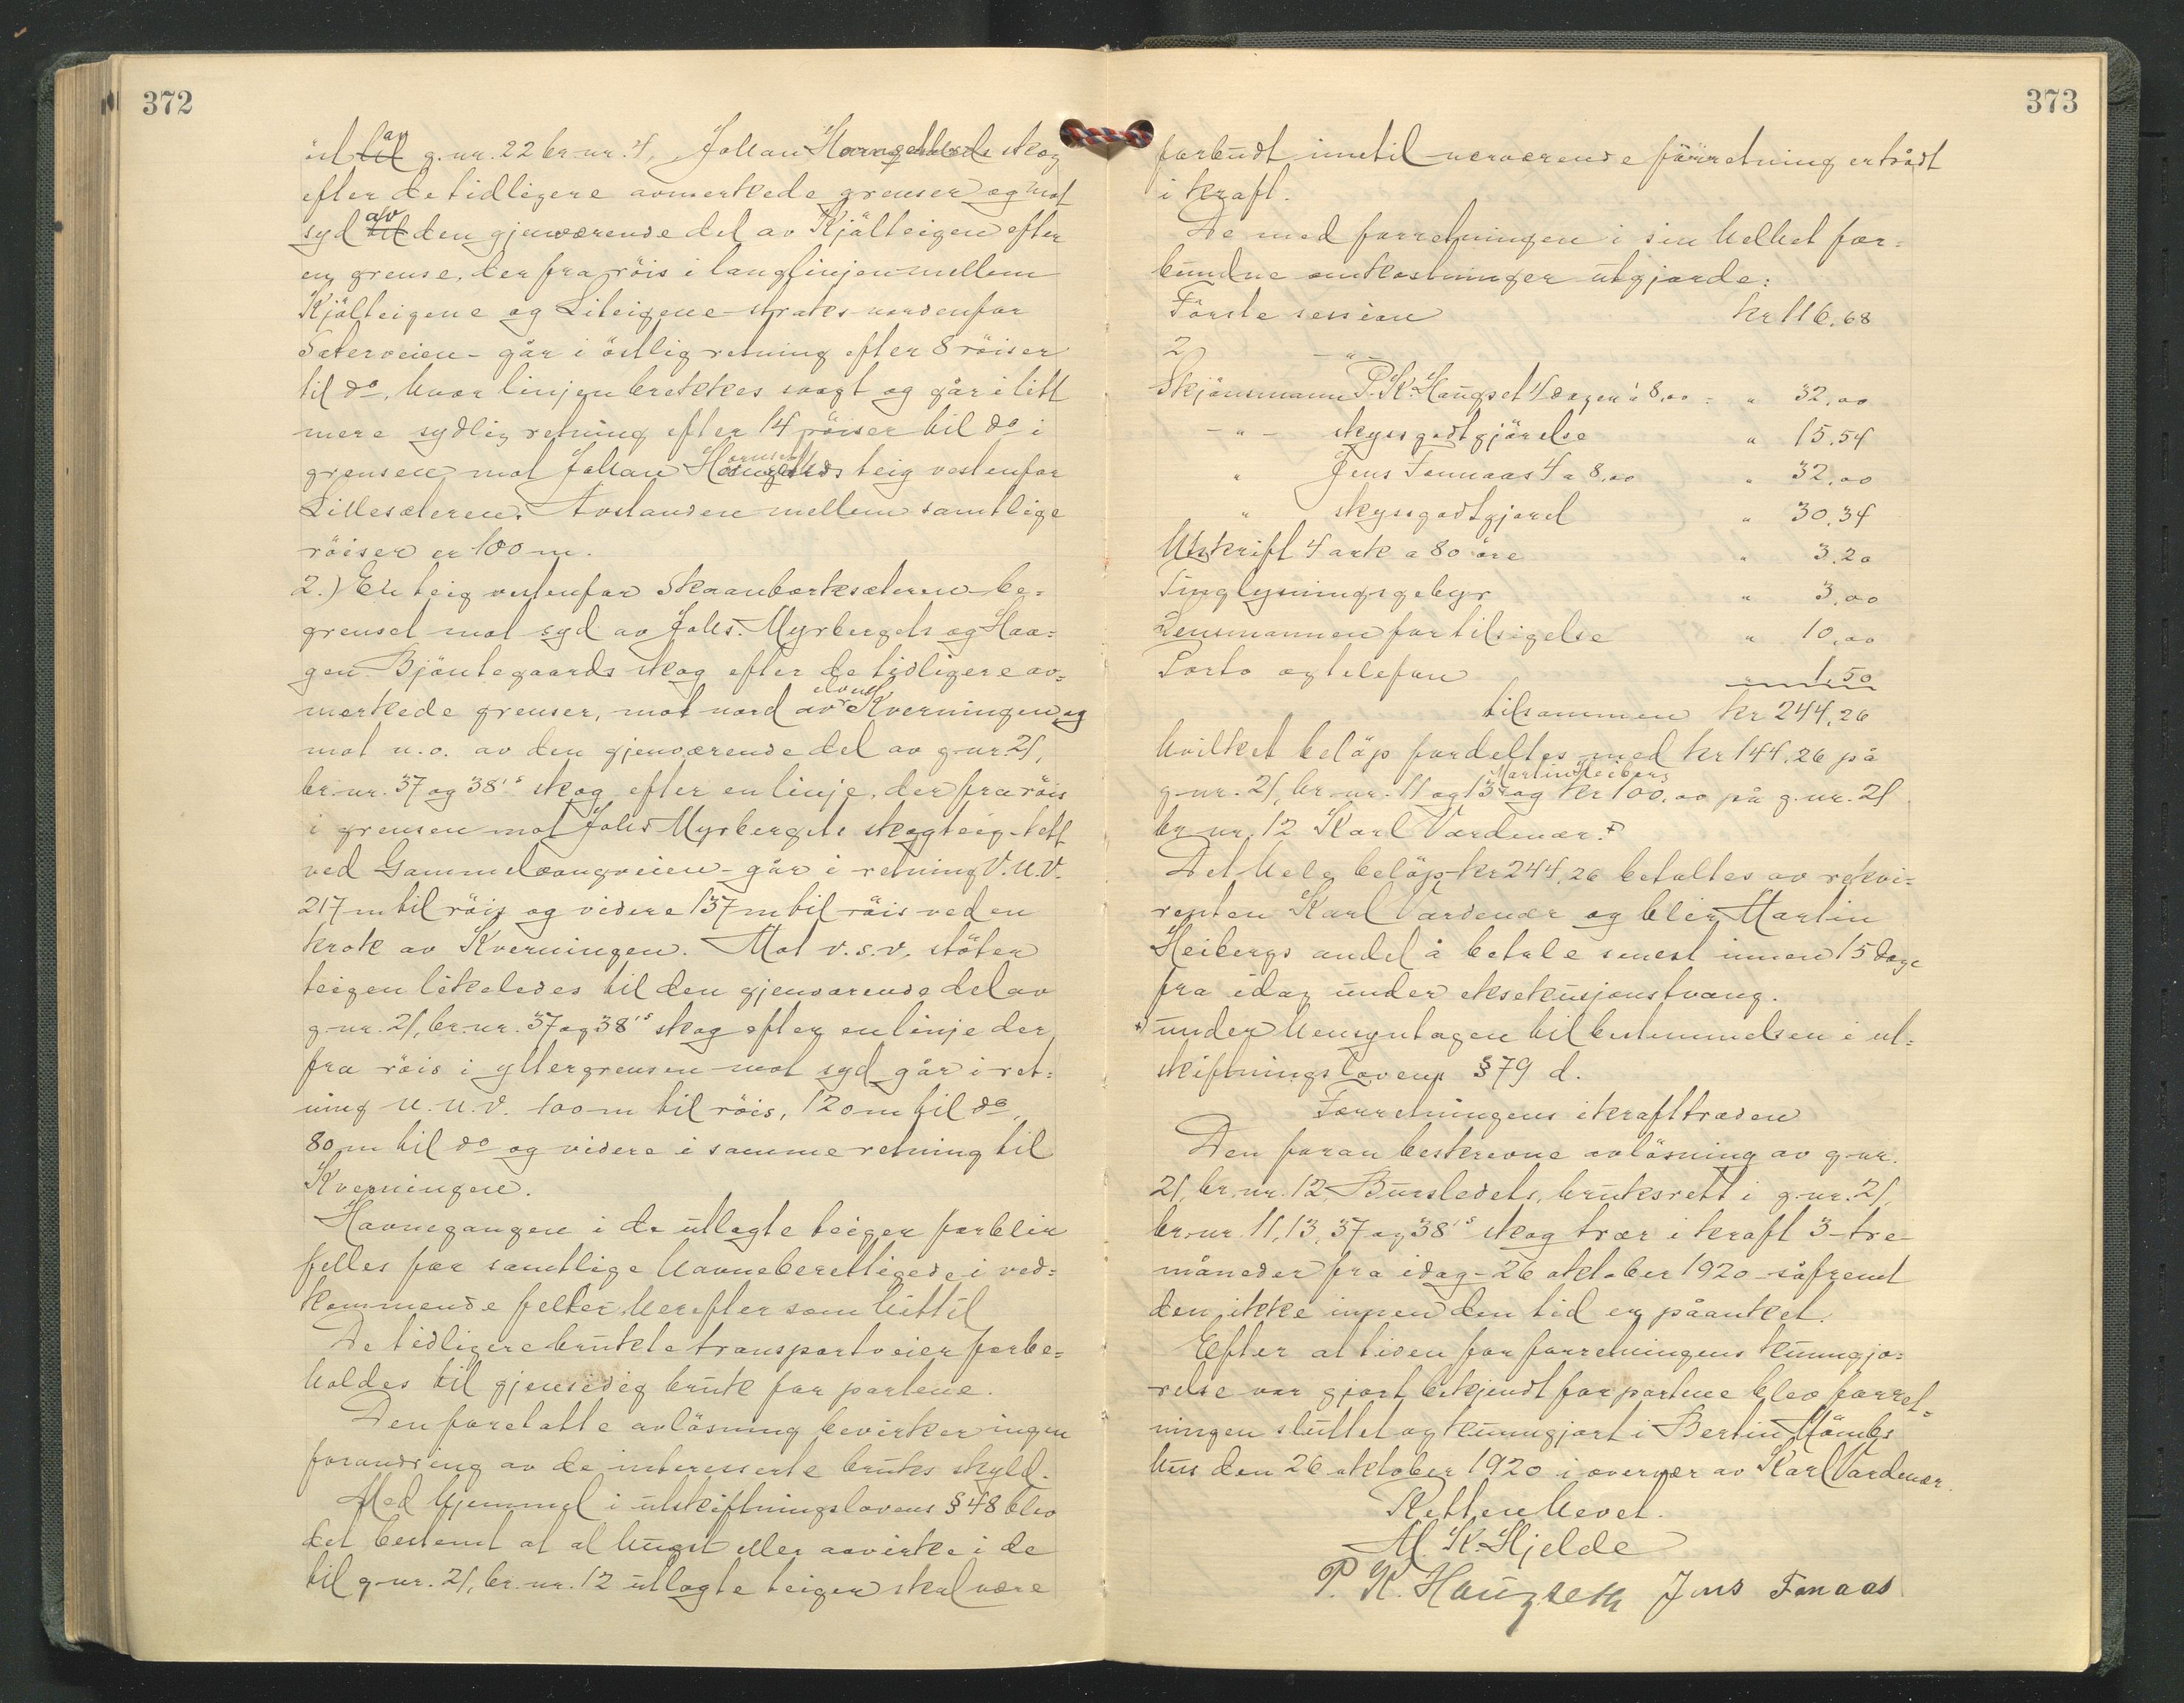 372
öst av g.nr. 22 br.nr. 4, Johan skog
efter de tidligere avmerkede grenser og mot
syd av den gjenværende del av Kjölteigen efter
en grense, der fra röis i langlinjen mellem
Kjölteigene og Liteigene - straks nordenfor
Sæterveien - går i östlig retning efter 8 röiser
til do, hvor linjen brekkes svagt og går i litt
mere sydlig retning efter 14 röiser til do i
grensen mot Johan teig vestenfor
Lillesæteren. Avstanden mellem samtlige
röiser er 100 m.
2.) En teig vestenfor Skaanbarksæteren be-
grenset mot syd av Johs. Myrbergets og Haa-
gen Bjöntegaards skog efter de tidligere av-
merkede grenser, mot nord av elven Kverningen og
mot n.o. av den gjenværende del av g-nr. 21,
br.nr. 37 og 38's skog efter en linje, der fra röis
i grensen mot Johs Myrbergets skogteig tett
ved Gammelvangveien - går i retning V.N.V.
217 m til röis og videre 137 m til röis ved en
krok av Kverningen. Mot v.s.v. stöter
teigen likeledes til den gjenværende del av
g-nr. 21, br.nr. 37 og 38's skog efter en linje der
fra röis i yttergrensen mot syd går i ret-
ning N.N.V. 100 m til röis, 120 m til do,
80 m til do og videre i samme retning til
Kverningen.
Havnegangen i de utlagte teiger forblir
felles for samtlige havneberettigede i ved-
kommende felter herefter som hittil
De tidligere brukte transportveier forbe-
holdes til gjensidig bruk for partene.
Den foretatte avlösning bevirker ingen
forandring av de interesserte bruks skyld.
Med hjemmel i utskiftningslovens § 48 blev
det bestemt at al hugst eller avvirke i de
til g-nr. 21, br.nr. 12 utlagte teiger skal være
373
forbudt inntil nærværende forretning er trådt
i kraft.
De med forretningen i sin helhet for-
bundne omkostninger utgjorde:
Förste session kr 116,68
2 - " -
Skjönsmann P. K. Haugset 4 dager a 8,00 = " 32,00
- " - skyssgodtgjörelse " 15,54
" Jens Fonnaas 4 a 8,00 " 32,00
" skyssgodtgjørel " 30,34
Utskrift 4 ark a 80 öre " 3,20
Tinglysningsgebyr " 3,00
Lensmannen for tilsigelse " 10,00
Porto og telefon 1,50
tilsammen kr 244,26
hvilket belöp fordeltes med kr 144,26 på
g-nr. 21, br-nr. 11 og 13 Martin Heiberg og kr 100,00 på g.nr. 21
br.nr. 12 Karl Vardenær.+)
Det hele belöp kr 244,26 betaltes av rekvi-
renten Karl Vardenær og blir Martin
Heibergs andel å betale senest innen 15 dage
fra idag under eksekusjonstvang.
+) under hensyntagen til bestemmelsen i ut-
skiftningslovens § 79 d.
Forretningens ikrafttræden
Den foran beskrevne avlösning av g-nr.
21, br.nr. 12 Bursledets, bruksrett i g.nr. 21,
br.nr. 11, 13, 37 og 38's skog trær i kraft 3 - tre
måneder fra idag - 26 oktober 1920 - såfremt
den ikke innen den tid er påanket.
Efter at tiden for forretningens kunngjö-
relse var gjort bekjendt for partene blev forret-
ningen sluttet og kunngjort i Bertin
hus den 26 oktober 1920 i overvær av Karl Vardenær.
Retten hevet.
M. K. Hjelde
P. K. Haugseth Jens Fonaas